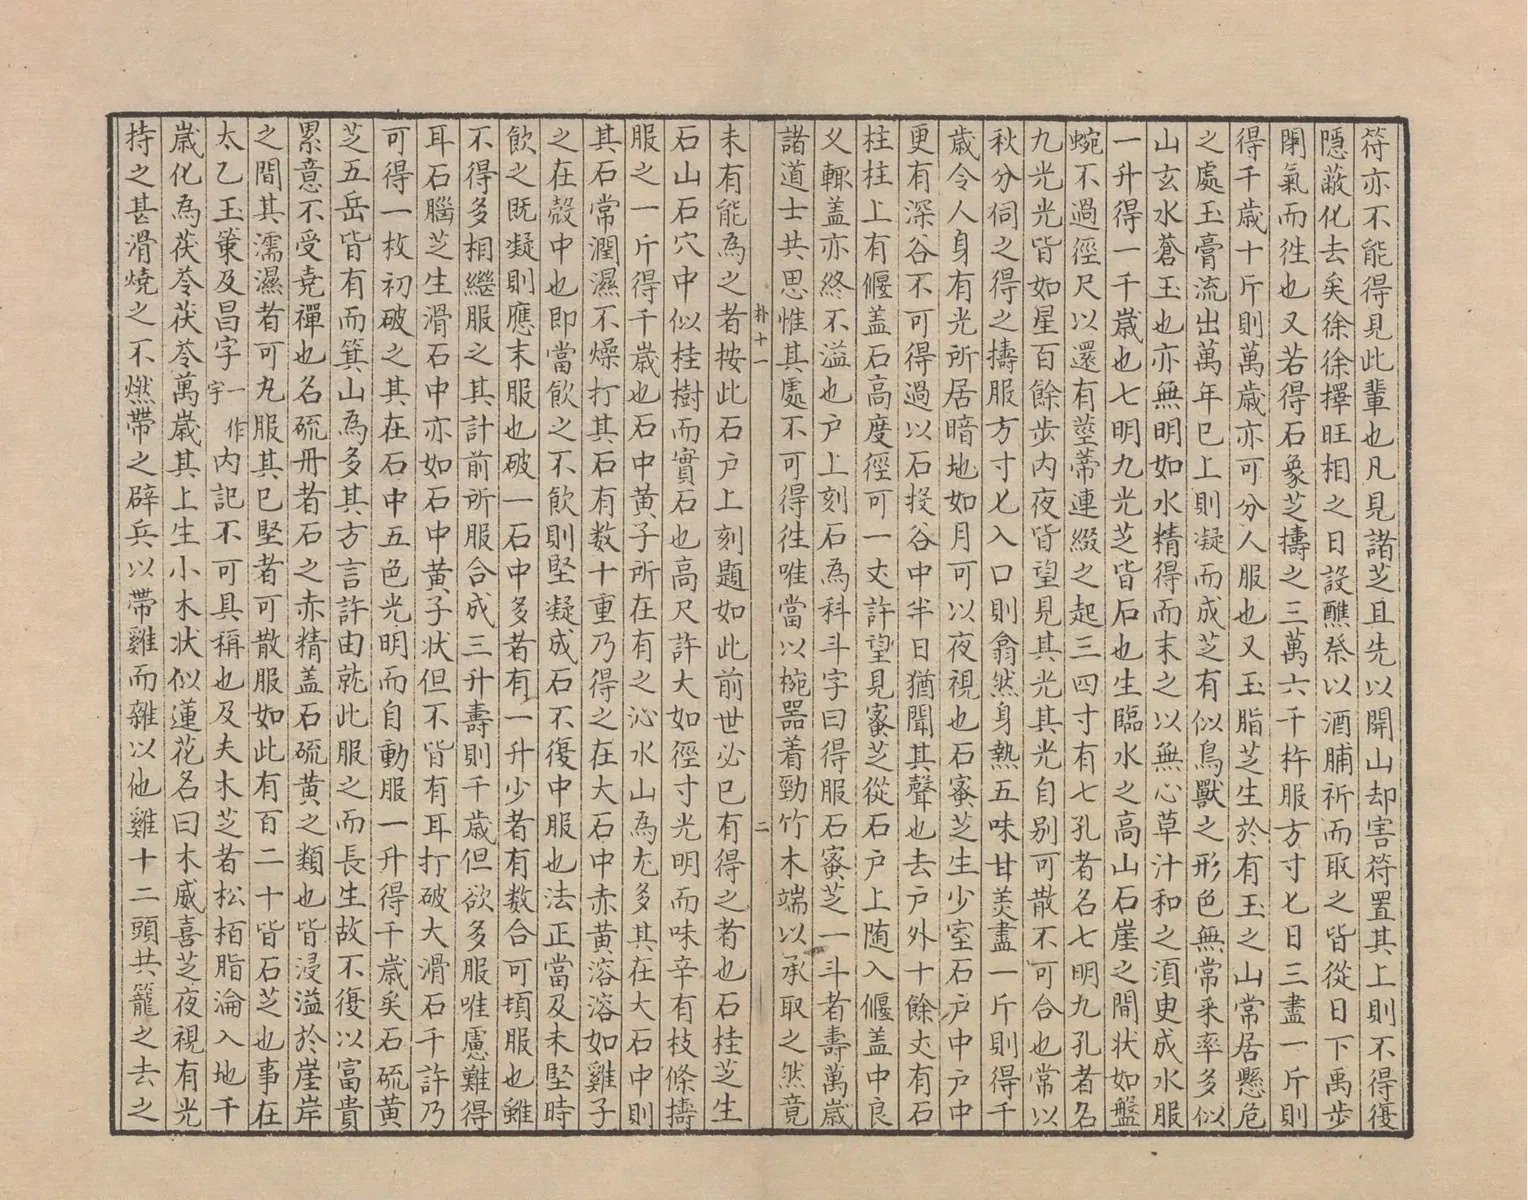 符亦不能得見此輩也凡見諸芝且先以開山却害符置其上則不得復
隱蔽化去矣徐徐擇旺相之日設醮祭以酒脯祈而取之皆從日下禹步
閉氣而徃也又若得石象芝擣之三萬六千杵服方寸匕日三盡一斤則
得千歲十斤則萬歲亦可分人服也又玉脂芝生於有玉之山常居懸危
之處玉膏流出萬年已上則凝而成芝有似鳥獸之形色無常釆率多似
山玄水蒼玉也亦無明如水精得而末之以無心草汁和之湏更成水服
一升得一千歲也七明九光芝皆石也生臨水之高山石崖之間状如盤
蜿不過徑尺以還有莖蔕連綴之起三四寸有七孔者名七明九孔者名
九光光皆如星百餘步内夜皆望見其光其光自别可散不可合也常以
秋分伺之得之擣服方寸匕入口則翕然身熱五味甘羙盡一斤則得千
歲令人身有光所居暗地如月可以夜視也石蜜芝生少室石户中户中
更有深谷不可得過以石投谷中半日猶聞其聲也去户外十餘丈有石
柱柱上有偃盖石高度徑可一丈許望見蜜芝從石户上随入偃盖中良
乆輙盖亦終不溢也户上刻石為科斗字曰得服石蜜芝一斗者壽萬歲
諸道士共思惟其處不可得徃唯當以椀器着勁竹木端以承取之然竟
朴十一
二
未有能為之者按此石户上刻題如此前世必已有得之者也石桂芝生
石山石穴中似桂樹而實石也高尺許大如徑寸光明而味辛有枝條擣
服之一斤得千歲也石中黄子所在有之沁水山為尤多其在大石中則
其石常潤濕不燥打其石有数十重乃得之在大石中赤黄溶溶如雞子
之在殻中也即當飲之不飲則堅凝成石不復中服也法正當及未堅時
飲之既凝則應末服也破一石中多者有一升少者有数合可頓服也雖
不得多相繼服之其計前所服合成三升壽則千歲但欲多服唯慮難得
耳石腦芝生滑石中亦如石中黄子状但不皆有耳打破大滑石千許乃
可得一枚初破之其在石中五色光明而自動服一升得千歲矣石硫黄
芝五岳皆有而箕山為多其方言許由就此服之而長生故不復以富貴
累意不受尭禪也名硫丹者石之赤精盖石硫黄之類也皆浸溢於崖岸
之間其濡濕者可丸服其已堅者可散服如此有百二十皆石芝也事在
太乙玉䇿及昌宇一作宇内記不可具稱也及夫木芝者松栢脂淪入地千
歲化為茯苓茯苓萬歲其上生小木状似蓮花名曰木威喜芝夜視有光
持之甚滑燒之不燃帶之辟兵以帶雞而雜以他雞十二頭共籠之去之